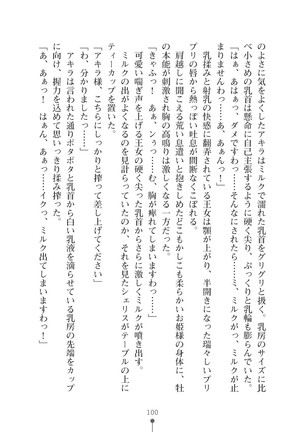 のよさに気をよくしたアキラはミルクで濡れた乳首をグリグリと扱く。乳房のサイズに比
べ小さめの乳首は懸命に自己主張するように硬く尖り、ぷっくりと乳輪も膨らんでいた。
「はぁぁ、はぁっ。ダメですわっ……そんなにされたら……ミ、ミルクがっ、ミルクが止
まりませんわっ……あ、あぁんっ！」
乳揉みと射乳の快感に翻弄されている王女は顎が上がり、半開きになった瑞々しいプリ
プリの唇から熱っぽい吐息が間断なくこぼれる。
肩越しに聞こえる荒い息遣いと抱きしめたどこもかしこも柔らかなお姫様の身体に、牡
の本能が刺激され胸の高鳴りは激しくなる一方。
「きゃふっ！　あぁ、ンぅっ……む、胸が痺れてしまいますわっ……」
可愛い喘ぎ声を上げる王女の硬く尖った乳首からさらに激しくミルクが噴き出す。
ミルクの出がよくなるのを見計らっていたのか、それを見たシェリスがテーブルの上に
ティーカップを置いた。
「アキラ様、こちらにしっかりと搾って差し上げてください」
「わ、分かりましたっ……」
アキラは言われた通りポタポタと乳首から白い乳液を滴らせている乳房の先端をカップ
に向け、握力を込めて思いっきり揉み搾った。
「あ、あぁっ！　はぁん、あぁっ……イクっ、ミルク出てしまいますわっ！」
100